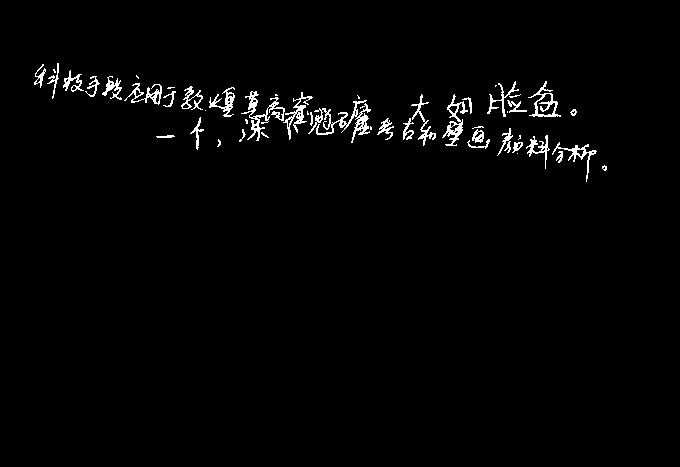 科技手段应用于敦煌莫高窟 大如脸盆。
一个,深 考古和壁画颜料分析。